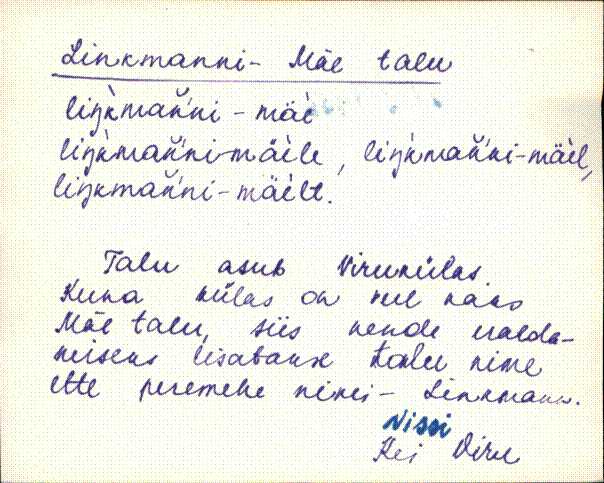 Linkmanni - Mäe talu
liŋ̀kmań̆ni - mäè
liŋ̀kmań̆ni mäèle, liŋ̀kmań̆ni - mäèl,
liŋ̀kmań̆ni - mäèlt.
Talu asub Virukülas.
Kuna külas on veel kaks
Mäe talu, siis nende eralda-
miseks lisatakse talu nime
ette peremehe nimi - Linkmann.
Nissi
Kei Viru